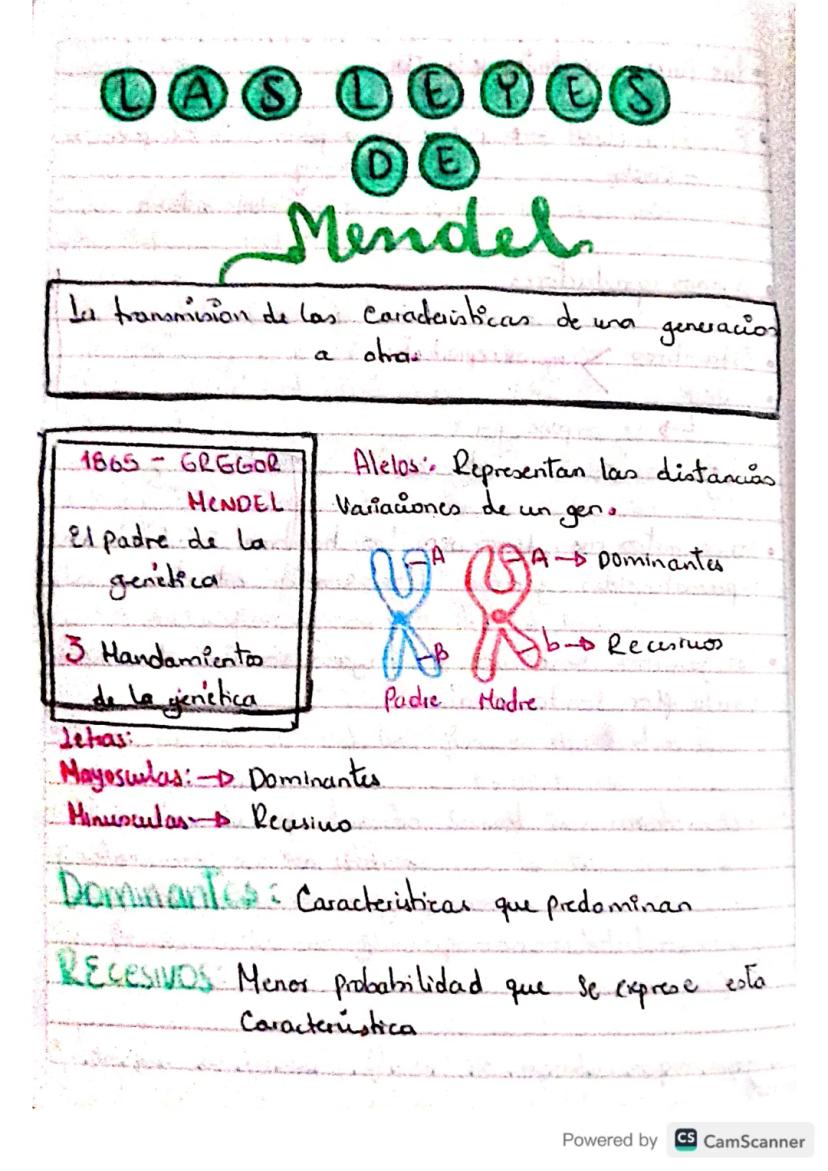 LAS LEYES
DE
Mendel
La transmision de las caracteristicas de una generacion
a otra.
1865 - GREGOR
MENDEL
El padre de la
genética
3 Mandamientos
de la genética
Alelos: Representan las distancias
Variaciones de un gen.
A A → Dominantes
B b → Recesivos
Padre Madre
Letras:
Mayosculas: → Dominantes
Minusculas → Recesivo
Dominantes: Caracteristicas que predominan
RECESIVOS Menor probabilidad que se exprese esta
Característica
Powered by CS CamScanner